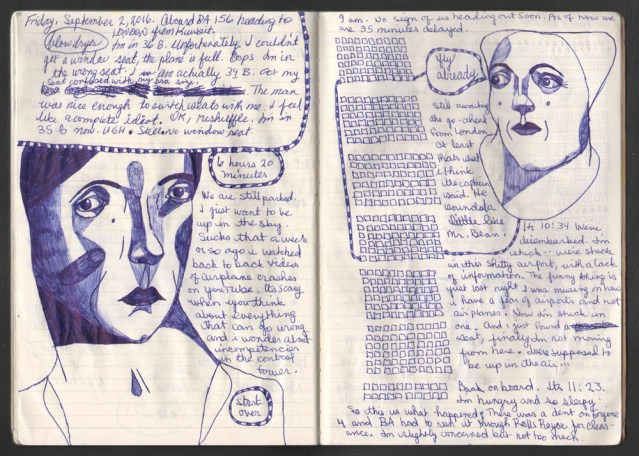 Friday, September 2, 2016. Aboard BA 156 heading to
London from Kuwait.
blow dryer
Im in 36 B. Unfortunately, I couldn't
get a window seat, the plane is full. Oops Im in
the wrong seat. I am actually 34 B. Got my
seat confused with my bra size.
The man
was nice enough to switch seats with me. I feel
like a complete idiot. OK, reshuffle. Im in
35 B now. UGH. Still no window seat.
6 hours 20
minutes
We are still parked.
I just want to be
up in the sky.
Sucks that a week
or so ago i watched
back to back videos
of airplane crashes
on YouTube. Its scary
when you think
about everything
that can go wrong
and i wonder about
incompetencies
in the control
tower.
start
over
I am. No sign of us heading out soon. As of now we
are 35 minutes delayed.
fly
already
Still awaiting
the go-ahead
from London
at least
thats what
I think
the captain
said. He
sounded a
little like
Mr. Bean.
Its 10:34. Were
disembarked. Im
stuck -- were stuck
in this shitty airport, with a lack
of information. The funny thing is
just last night i was musing on how
i have a fear of airports and not
airplanes. Now Im stuck in
one. And i just found a
seat, finally. Im not moving
from here. Were supposed to
be up in the air...
Back on board. Its 11:23.
Im hungry and so sleepy.
So this is what happened: There was a dent on engine
4 and BA had to run it through Rolls Royce for clear-
ance. Im slightly concerned but not too much.